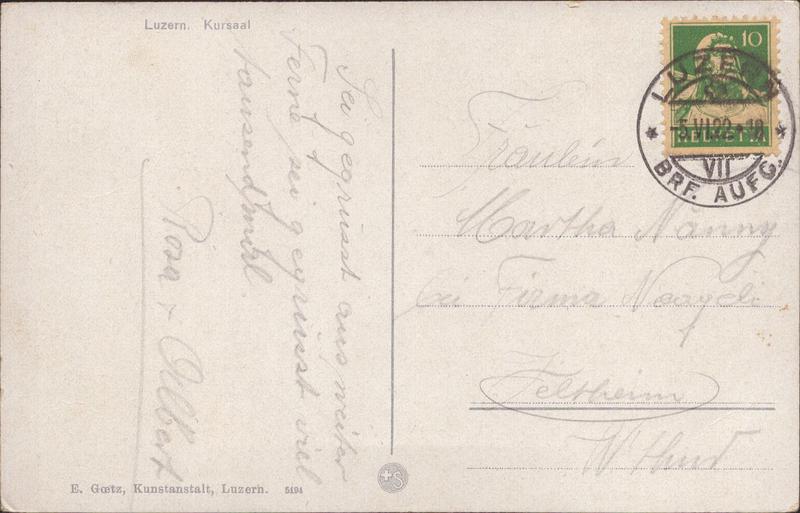 Luzern. Kursaal
Sei gegrüsst aus weiter
Ferne, sei gegrüsst viel
tausendmal.
Rosa + Albert
E. Gœtz, Kunstanstalt, Luzern. 5194
+S
10
HELVETIA
LUZERN
5.VI.22
VII
BRF. AUFG.
Fräulein
Martha Nänny
bei Firma Naegeli
Feltheim
W'thur